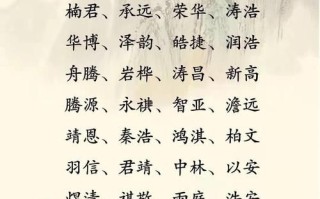 楠君、承远、荣华、涛浩
华博、泽韵、皓捷、润浩
舟腾、岩桦、涛昌、新高
腾源、永祺、智亚、澹远
靖恩、秦浩、鸿淇、柏文
羽信、君靖、中林、以安